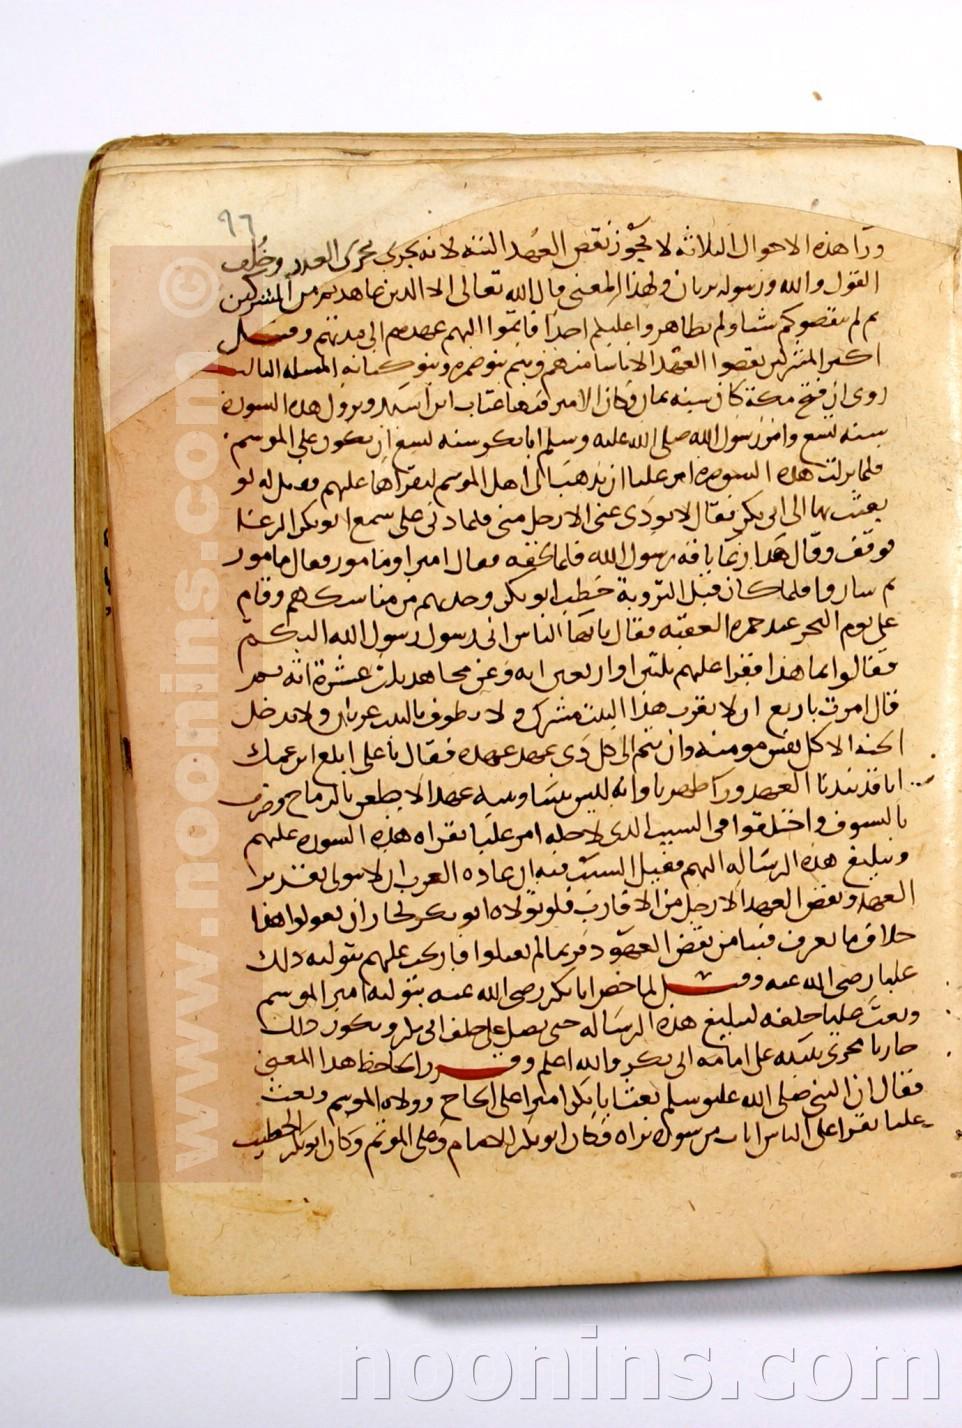 ٩٦
ورا هذه الاحوال الثلاثه لا يجوز نقض العهد البتة لانه يجرى مجرى الغدر وخلف
القول والله ورسوله بريان ولهذا المعنى قال الله تعالى الا الذين عاهدتم من المشركين
ثم لم ينقصوكم شيا ولم يظاهروا عليكم احدا فاتموا اليهم عهدهم الى مدتهم وقيل
اكثر المشركين نقضوا العهد الا اناسا منهم وهم بنو ضمره وبنو كنانه المسله الثالث
روى ان فتح مكة كان سنه ثمان وكان الامير فيها عتاب ابن اسيد ونزول هذه السورة
سنه تسع وامر رسول الله صلى الله عليه وسلم ابا بكر سنه تسع ان يكون على الموسم
فلما نزلت هذه السوره امر عليا ان يذهب الى اهل الموسم ليقراها عليهم فقيل له لو
بعثت بها الى ابى بكر فقال لا يودى عنى الا رجل منى فلما دنى على سمع ابو بكر الرغا
فوقف وقال هذا رغا ناقه رسول الله فلما لحقه فقال امير او مامور فقال مامور
ثم ساروا فلما كان قبل التروية خطب ابو بكر وحدثهم من مناسكهم وقام
على يوم النحر عند جمره العقبه فقال يا ايها الناس انى رسول رسول الله اليكم
فقالوا بما هذا فقرا عليهم ثلثين او اربعين ايه وعن مجاهد ثلث عشرة ايه ثم
قال امرت باربع ان لا يقرب هذا البيت مشرك ولا يطوف بالبيت عريان ولا يدخل
الجنه الا كل نفس مومنه وان يتم الى كل ذى عهد عهده فقال يا على ابلغ ابن عمك
انا قد نبذنا العهد ورا ظهورنا وانه ليس بيننا وبينه عهد الا طعن بالرماح وضرب
بالسيوف واختلفوا فى السبب الذى لاجله امر عليا بقراه هذه السوره عليهم
وتبليغ هذه الرساله اليهم فقيل السبب فيه ان عاده العرب ان لا يتولى تقرير
العهد ونقض العهد الا رجل من الاقارب فلو تولاه ابو بكر لجاز ان يقولوا هذا
خلاف ما يعرف فينا من نقض العهود فربما لم يقبلوا فازيحت علتهم بتوليه ذلك
عليا رضى الله عنه وقيل لما خص ابا بكر رضى الله عنه بتوليه امير الموسم
وبعث عليا خلفه لتبليغ هذه الرساله حتى يصلى على خلف ابى بكر ويكون ذلك
جاريا مجرى تنبيه على امامه ابى بكر والله اعلم وقرر الجاحظ هذا المعنى
فقال ان النبى صلى الله عليه وسلم بعث ابا بكر اميرا على الحاج وولاه الموسم وبعث
عليا يقرا على الناس ايات من سوره براه فكان ابو بكر الامام وعلى الموتم وكان ابو بكر الخطيب
www.noonins.com ©
noonins.com